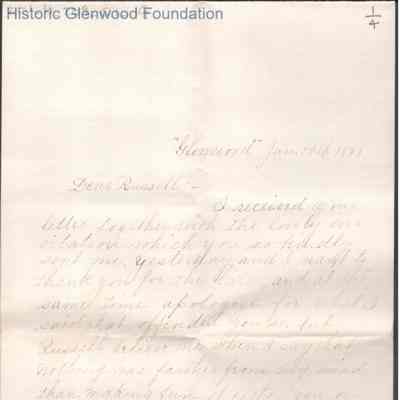 Historic Glenwood Foundation
1/4
"Glenwood" Jan.
Dear Russell:-
I received your
letter together with the lovely inv
itation which you so kindly
sent me, yesterday and I want to
thank you for the and at the
same time apologize for what I
said that offended you so, but
Russell believe me when I say that
nothing was farther from my mind
than making fun of